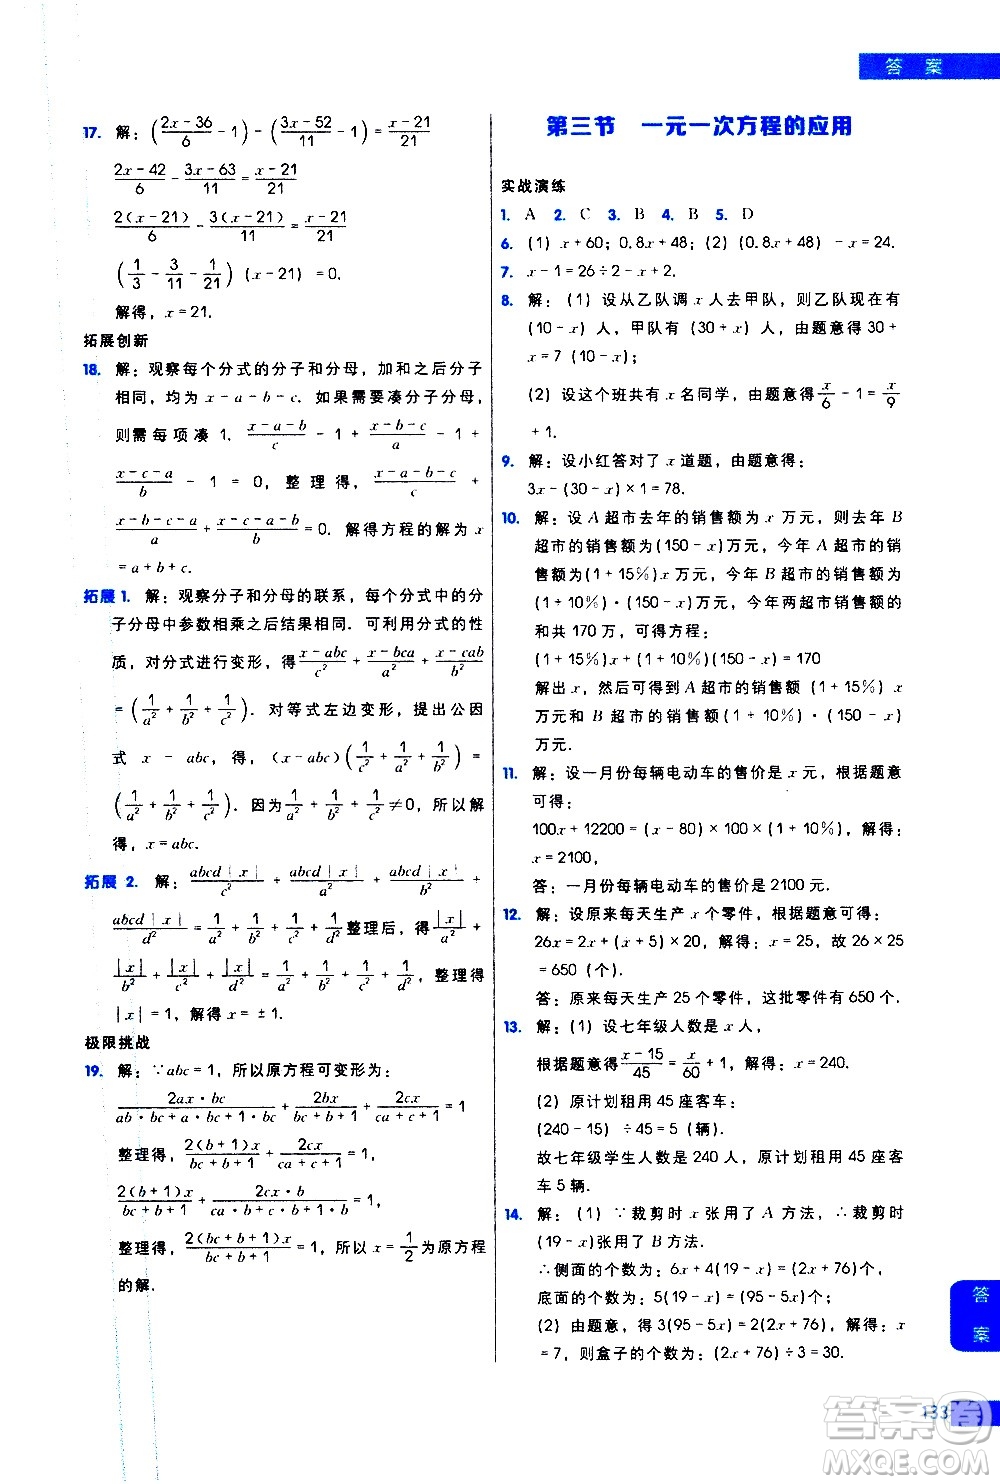 答 案
17. 解：((2x－36)/6－1)－((3x－52)/11－1)＝(x－21)/21
(2x－42)/6－(3x－63)/11＝(x－21)/21
2(x－21)/6－3(x－21)/11＝(x－21)/21
(1/3－3/11－1/21)(x－21)＝0.
解得，x＝21.
拓展创新
18. 解：观察每个分式的分子和分母，加和之后分子
相同，均为 x－a－b－c. 如果需要凑分子分母，
则需每项凑 1. (x－a－b)/c－1＋(x－b－c)/a－1＋
(x－c－a)/b－1＝0，整理得，(x－a－b－c)/c＋
(x－b－c－a)/a＋(x－c－a－b)/b＝0. 解得方程的解为 x
＝a＋b＋c.
拓展 1. 解：观察分子和分母的联系，每个分式中的分
子分母中参数相乘之后结果相同. 可利用分式的性
质，对分式进行变形，得(x－abc)/c²＋(x－bca)/a²＋(x－cab)/b²
＝(1/a²＋1/b²＋1/c²). 对等式左边变形，提出公因
式 x－abc，得，(x－abc)(1/c²＋1/a²＋1/b²)＝
(1/a²＋1/b²＋1/c²). 因为1/a²＋1/b²＋1/c²≠0，所以解
得，x＝abc.
拓展 2. 解：abcd|x|/c²＋abcd|x|/a²＋abcd|x|/b²＋
abcd|x|/d²＝1/a²＋1/b²＋1/c²＋1/d²整理后，得|x|/a²＋
|x|/b²＋|x|/c²＋|x|/d²＝1/a²＋1/b²＋1/c²＋1/d²，整理得
|x|＝1. 解得 x＝±1.
极限挑战
19. 解：∵abc＝1，所以原方程可变形为：
2ax·bc/(ab·bc＋a·bc＋bc)＋2bx/(bc＋b＋1)＋2cx/(ca＋c＋1)＝1
整理得，2(b＋1)x/(bc＋b＋1)＋2cx/(ca＋c＋1)＝1
2(b＋1)x/(bc＋b＋1)＋2cx·b/(ca·b＋c·b＋b)＝1
整理得，2(bc＋b＋1)x/(bc＋b＋1)＝1，所以 x＝1/2为原方程
的解.
第三节 一元一次方程的应用
实战演练
1. A 2. C 3. B 4. B 5. D
6. (1) x＋60；0.8x＋48；(2) (0.8x＋48)－x＝24.
7. x－1＝26÷2－x＋2.
8. 解：(1) 设从乙队调 x 人去甲队，则乙队现在有
(10－x) 人，甲队有 (30＋x) 人，由题意可得 30＋
x＝7 (10－x)；
(2) 设这个班共有 x 名同学，由题意得 x/6－x/9
＋1.
9. 解：设小红答对了 x 道题，由题意得：
3x－(30－x)×1＝78.
10. 解：设 A 超市去年的销售额为 x 万元，则去年 B
超市的销售额为(150－x)万元，今年 A 超市的销
售额为(1＋15%)x 万元，今年 B 超市的销售额为
(1＋10%)(150－x)万元，今年两超市销售额的
和共 170 万，可得方程：
(1＋15%)x＋(1＋10%)(150－x)＝170
解出 x，进而可得到 A 超市的销售额 (1＋15%) x
万元和 B 超市的销售额(1＋10%)·(150－x)
万元.
11. 解：设一月份每辆电动车的售价是 x 元，根据题意
可得：
100x＋12200＝(x－80)×100×(1＋10%)，解得：
x＝2100，
答：一月份每辆电动车的售价是 2100 元.
12. 解：设原来每天生产 x 个零件，根据题意可得：
26x＝2x＋(x＋5)×20，解得：x＝25，故 26×25
＝650 (个).
答：原来每天生产 25 个零件，这批零件有 650 个.
13. 解：(1) 设七年级人数是 x 人，
根据题意得(x－15)/45＝x/60＋1，解得：x＝240.
(2) 原计划租用 45 座客车：
(240－15)÷45＝5 (辆).
故七年级学生人数是 240 人，原计划租用 45 座客
车 5 辆.
14. 解：(1) ∵裁剪时 x 张用了 A 方法，∴裁剪时
(19－x) 张用了 B 方法.
∴侧面的个数为：6x＋4(19－x)＝(2x＋76)个，
底面的个数为：5(19－x)＝(95－5x)个；
(2) 由题意，得 3(95－5x)＝2(2x＋76)，解得：x
＝7，则盒子的个数为：(2x＋76)÷3＝30(个).
答
案
133
答案
MXQE.COM